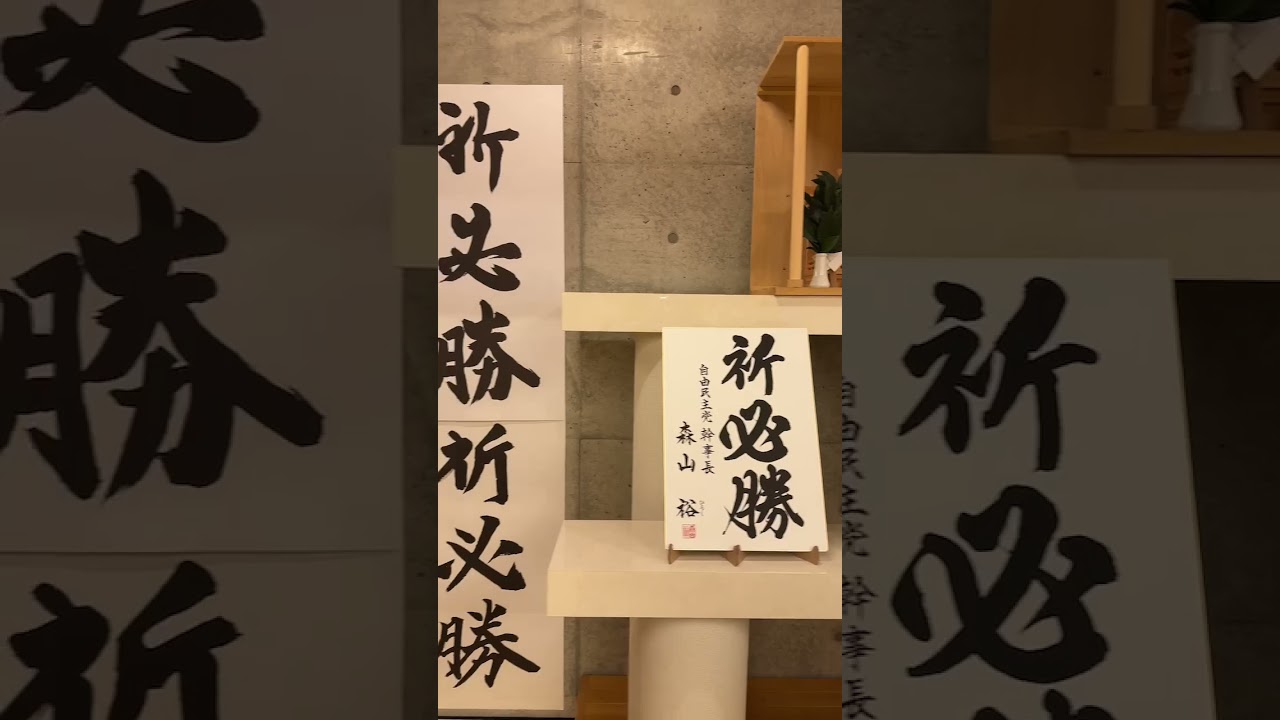 祈必勝
祈必勝
祈必勝
自由民主党 幹事長
森山 裕